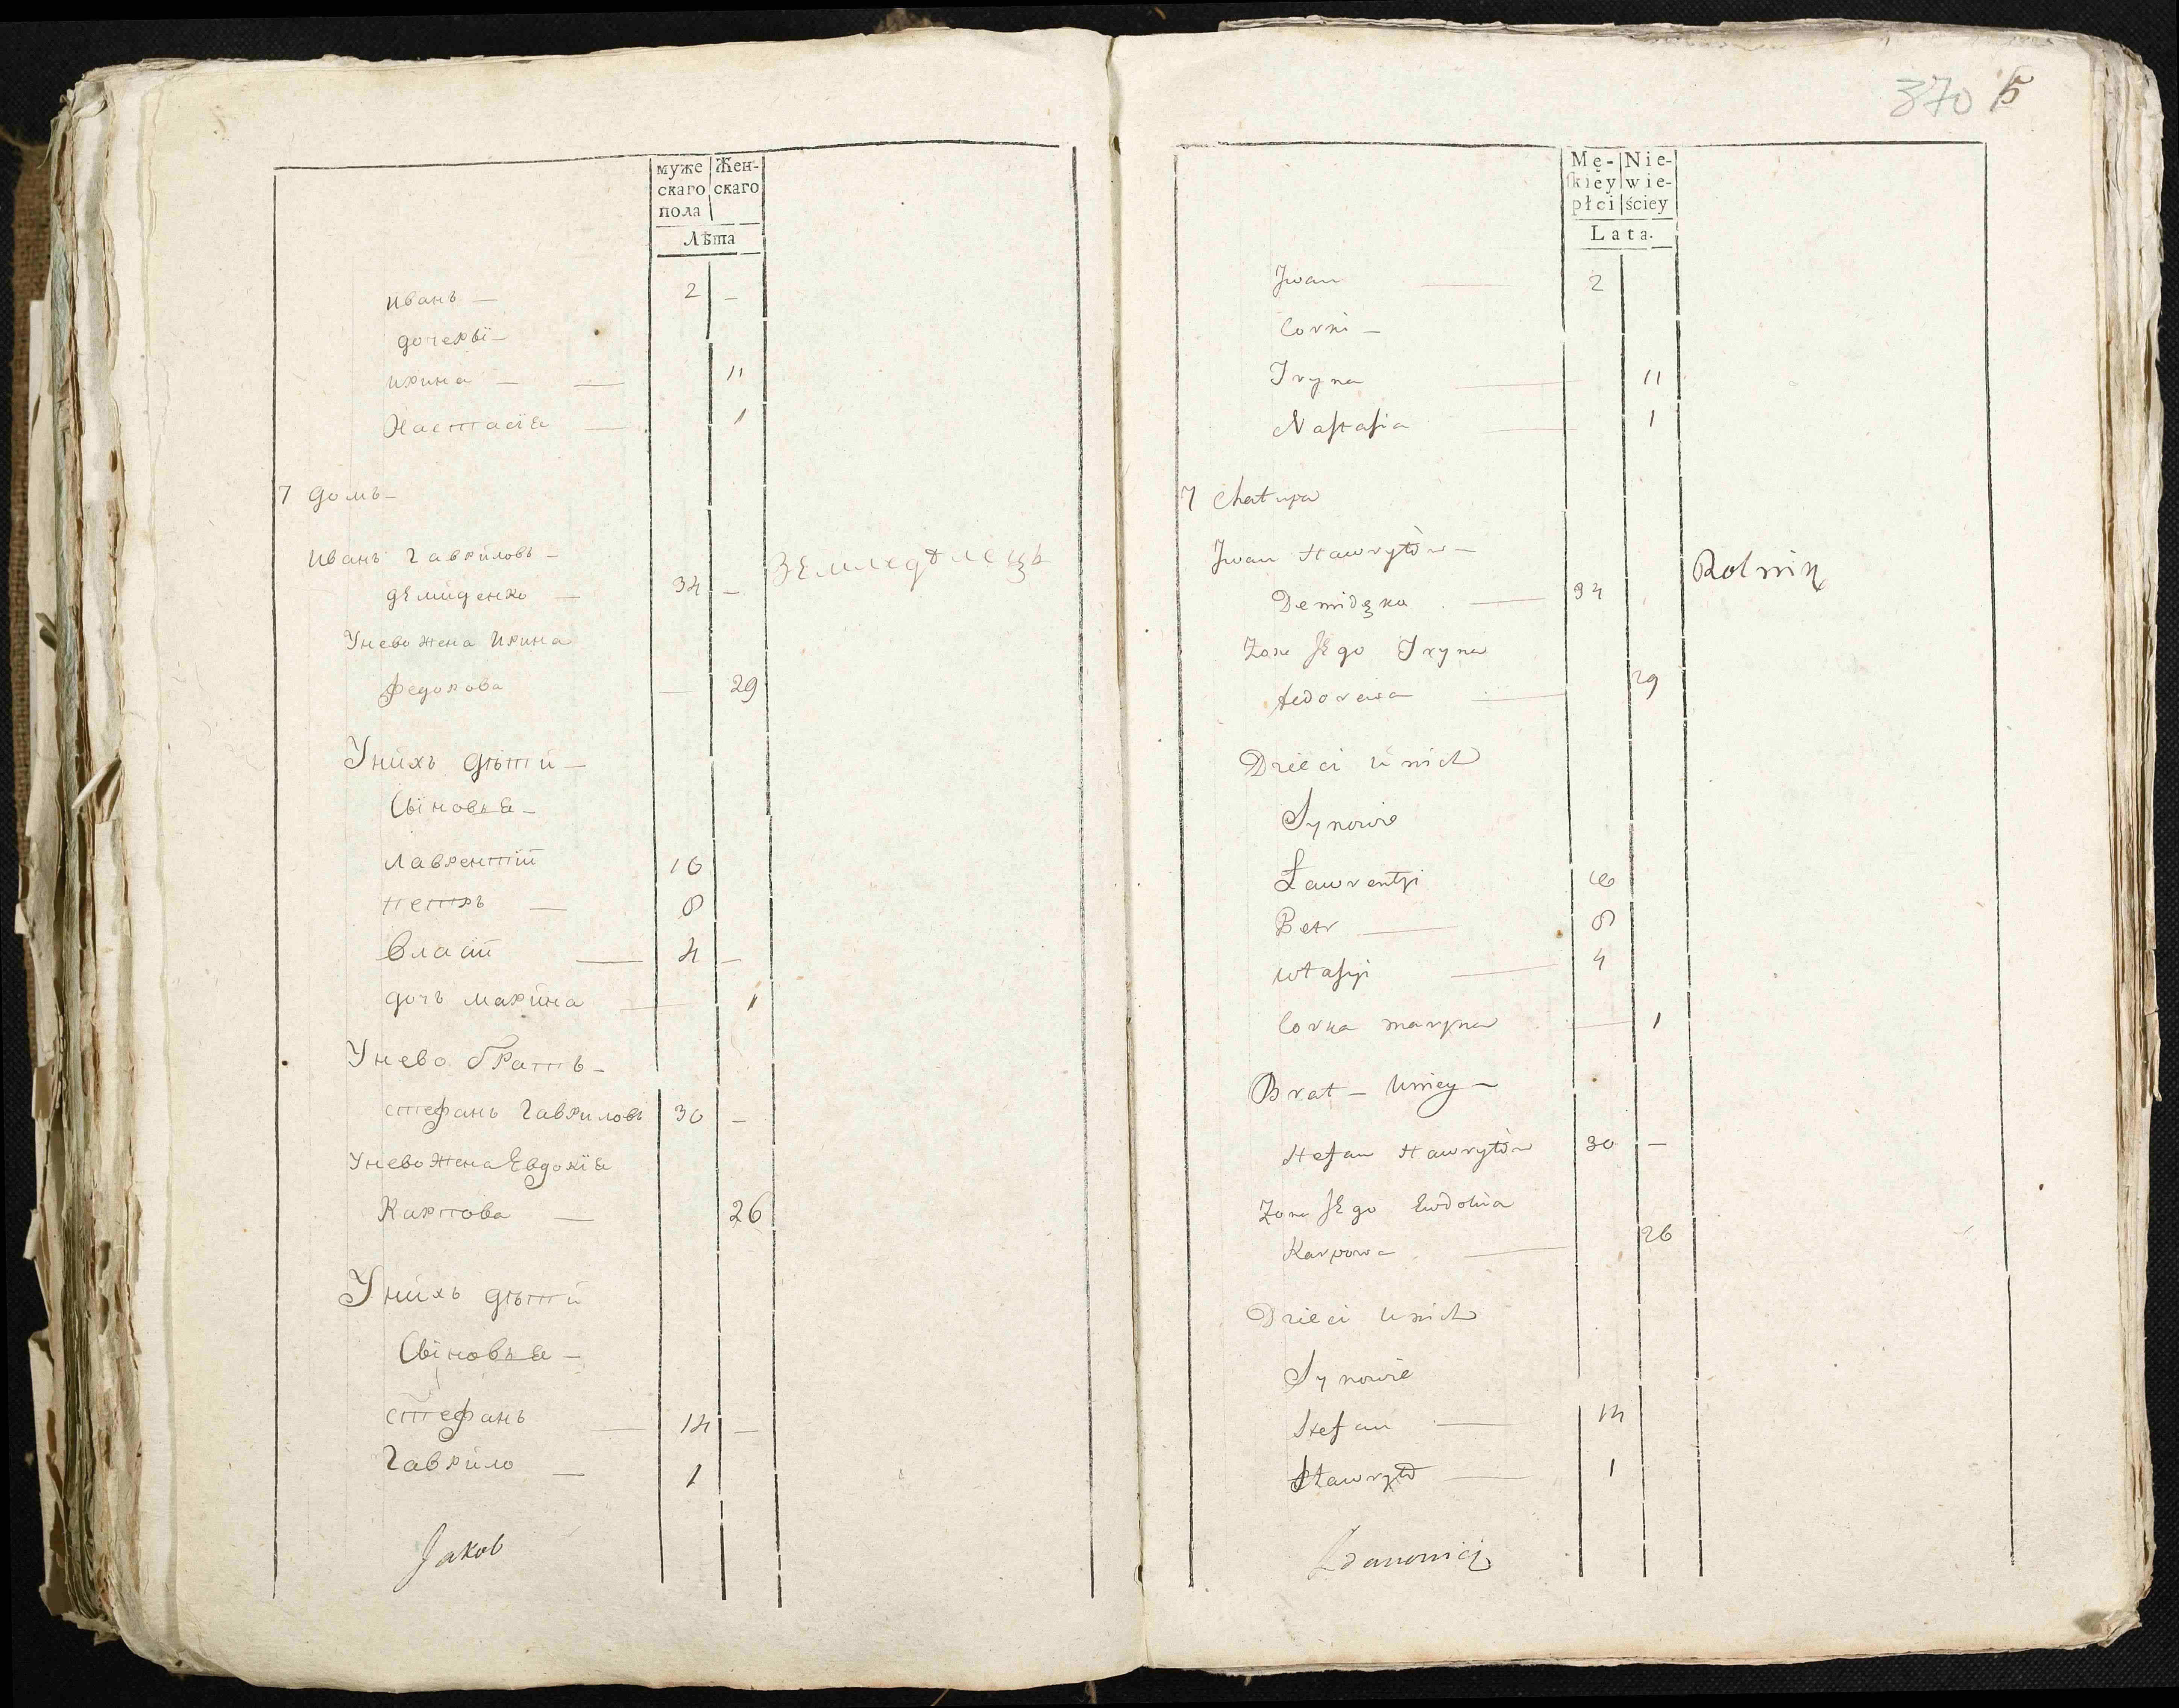 муже Жен-
скаго скаго
пола
Лѣта
иванъ — 2 —
дочерьі —
ирина — — 11
Настасія — 1
7 домъ —
Иванъ Гавриловъ —
демиденко — 34 — Земледѣлецъ
Унево жена Ирина
федорова — 29
Унихъ дѣти —
Сыновья —
лаврентій 10
петръ — 8
власій — 4 —
дочь марина — 1
Унево братъ —
стефанъ Гавриловъ 30 —
Унево жена Евдокія
Карпова — 26
Унихъ дѣти
Сыновья —
стефанъ — 14 —
Гаврило — 1
Jakob
370 5
Mę- Nie-
skiey wie-
płci ściey
Lata.
Jwan — 2
Corki —
Iryna — 11
Nastasia — 1
7 Chałupa
Jwan Hawryłów —
Demidęka — 34 Rolnik
Zona Jego Iryna
fedorowa — 29
Dzieci u nich
Synowie
Ławrentji 10
Petr — 8
Własyi — 4
Corka maryna — 1
Brat — Uniey —
Stefan Hawryłów 30 —
Zona Jego Ewdokia
Karpowa — 26
Dzieci u nich
Synowie
Stefan — 14
Hawryło — 1
Zdanowicz